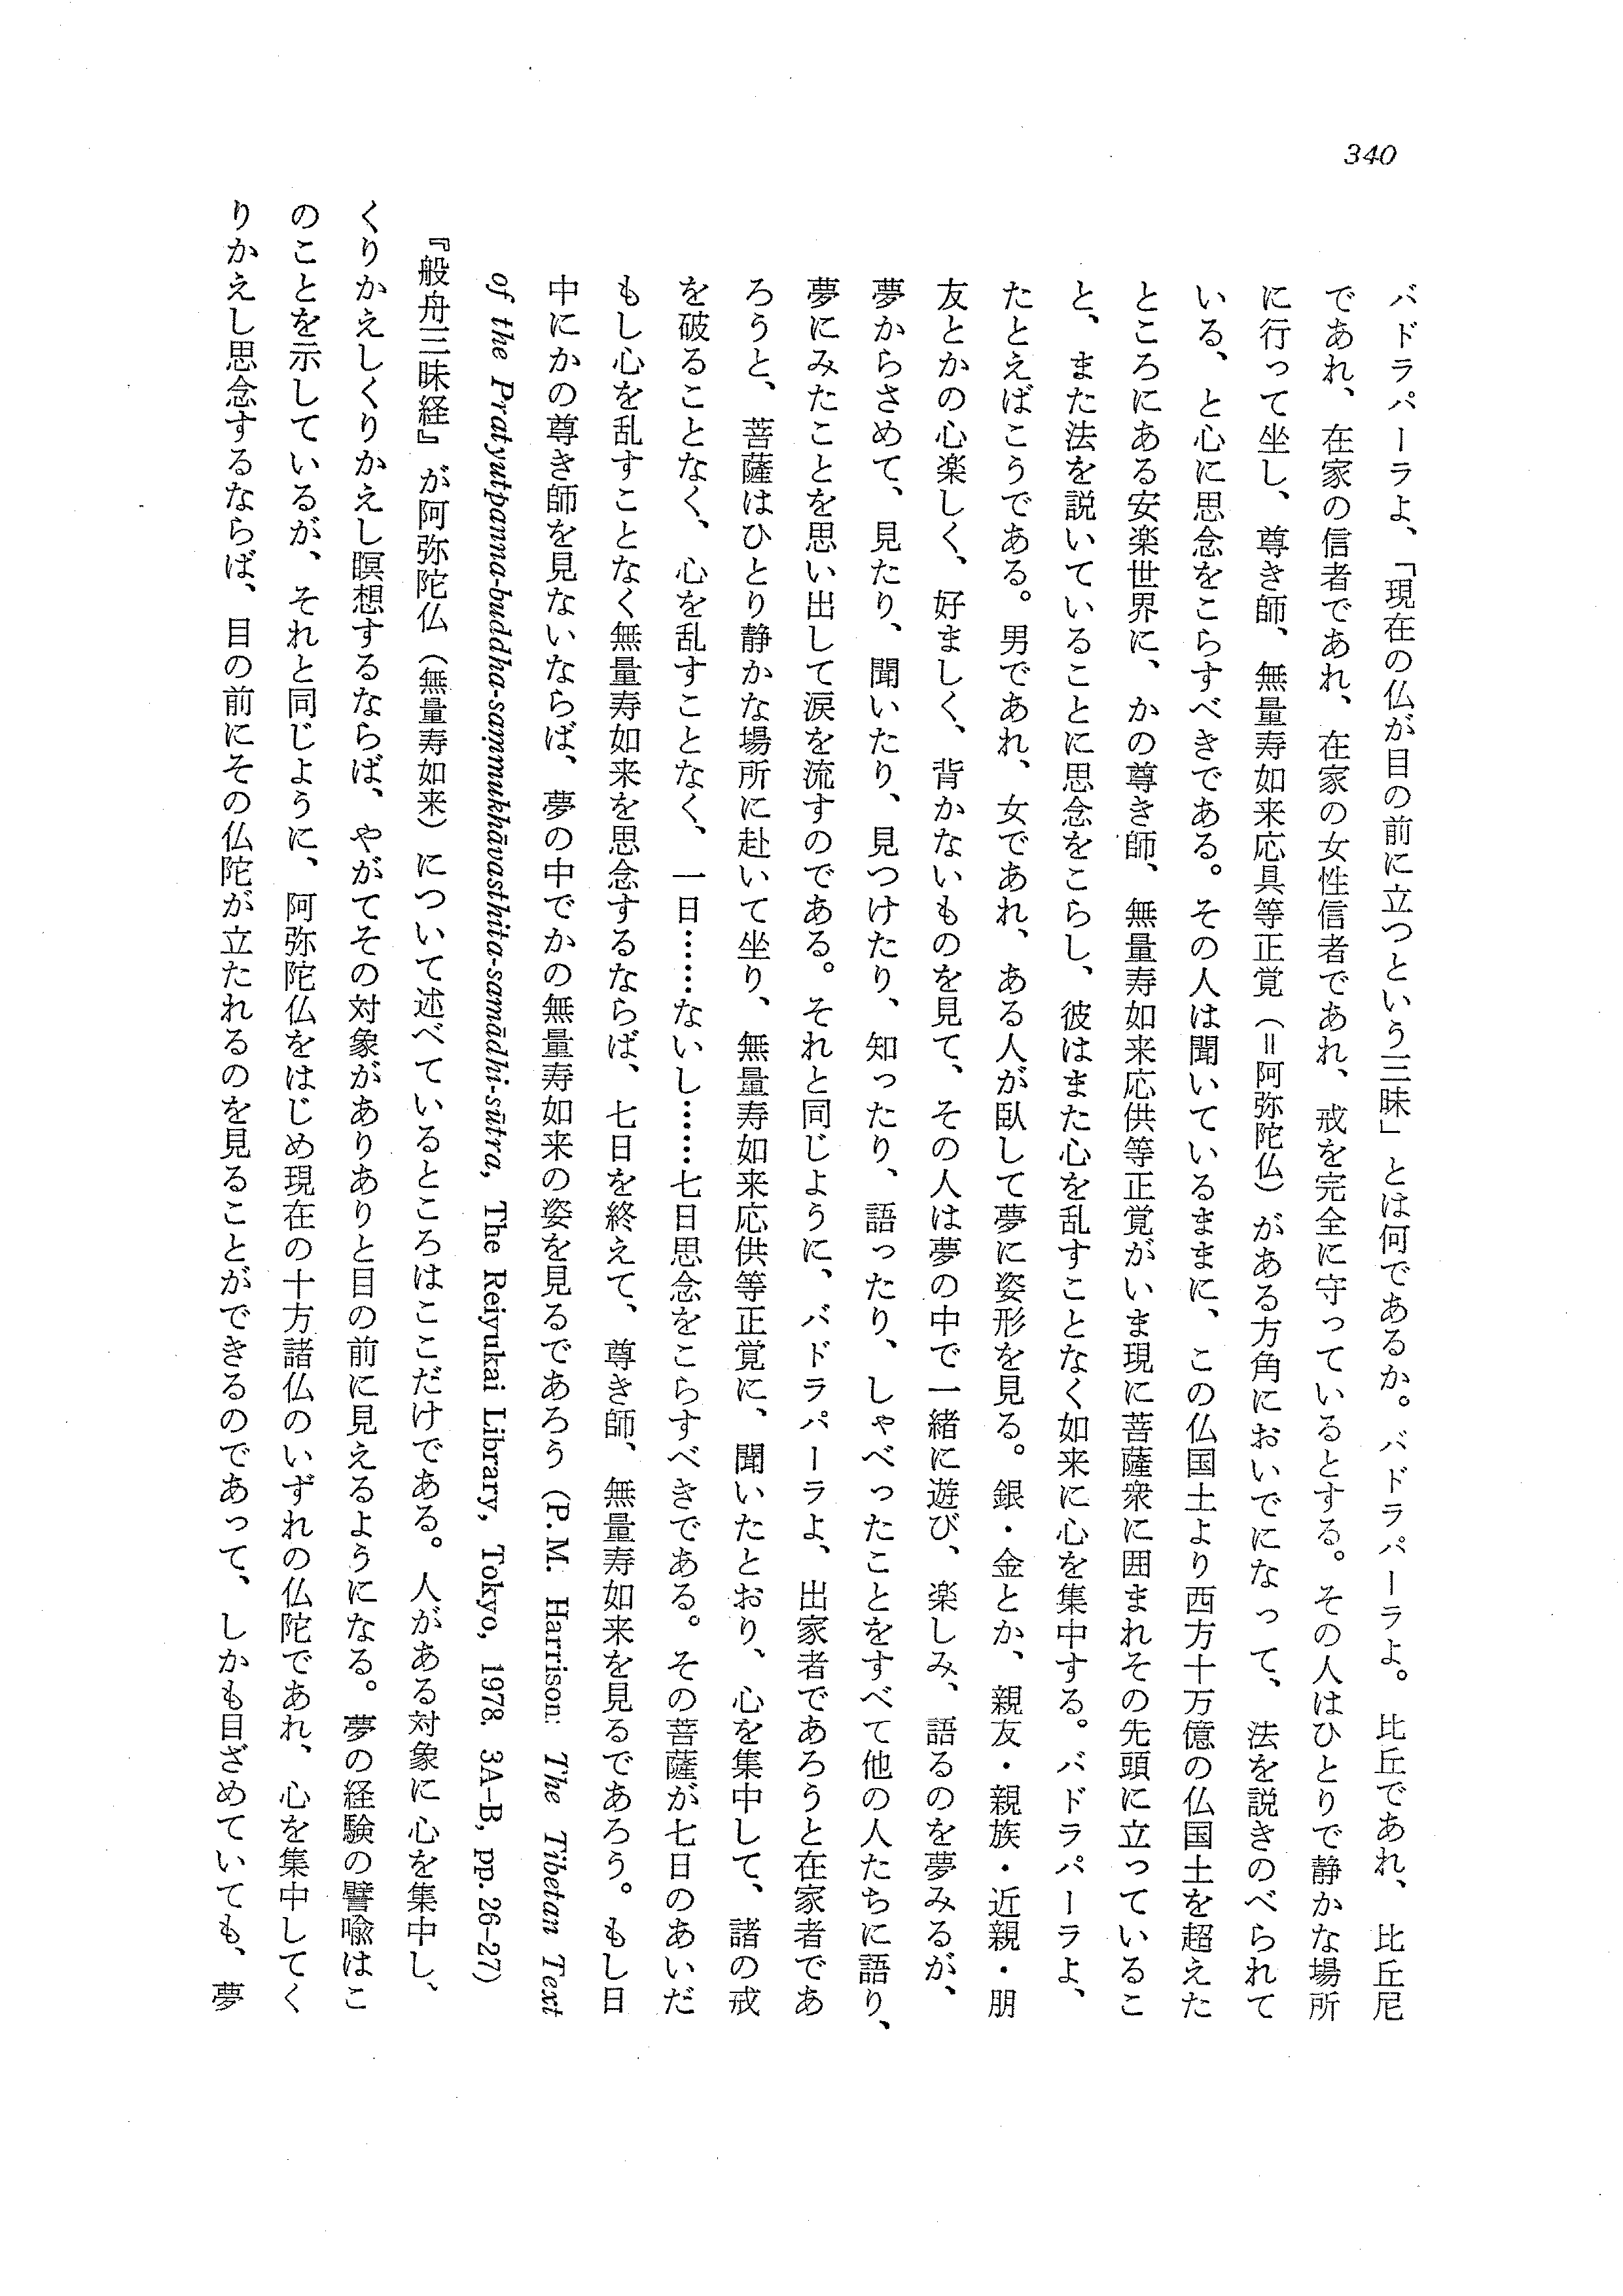 340
バドラパーラよ、「現在の仏が目の前に立つという三昧」とは何であるか。バドラパーラよ。比丘であれ、比丘尼
であれ、在家の信者であれ、在家の女性信者であれ、戒を完全に守っているとする。その人はひとりで静かな場所
に行って坐し、尊き師、無量寿如来応具等正覚（＝阿弥陀仏）がある方角においでになって、法を説きのべられて
いる、と心に思念をこらすべきである。その人は聞いているままに、この仏国土より西方十万億の仏国土を超えた
ところにある安楽世界に、かの尊き師、無量寿如来応供等正覚がいま現に菩薩衆に囲まれその先頭に立っているこ
と、また法を説いていることに思念をこらし、彼はまた心を乱すことなく如来に心を集中する。バドラパーラよ、
たとえばこうである。男であれ、女であれ、ある人が臥して夢に姿形を見る。銀・金とか、親友・親族・近親・朋
友とかの心楽しく、好ましく、背かないものを見て、その人は夢の中で一緒に遊び、楽しみ、語るのを夢みるが、
夢からさめて、見たり、聞いたり、見つけたり、知ったり、語ったり、しゃべったことをすべて他の人たちに語り、
夢にみたことを思い出して涙を流すのである。それと同じように、バドラパーラよ、出家者であろうと在家者であ
ろうと、菩薩はひとり静かな場所に赴いて坐り、無量寿如来応供等正覚に、聞いたとおり、心を集中して、諸の戒
を破ることなく、心を乱すことなく、一日……ないし……七日思念をこらすべきである。その菩薩が七日のあいだ
もし心を乱すことなく無量寿如来を思念するならば、七日を終えて、尊き師、無量寿如来を見るであろう。もし日
中にかの尊き師を見ないならば、夢の中でかの無量寿如来の姿を見るであろう（P. M. Harrison: The Tibetan Text
of the Pratyutpanna-buddha-saṃmukhāvasthita-samādhi-sūtra, The Reiyukai Library, Tokyo, 1978. 3A–B, pp. 26–27）
『般舟三昧経』が阿弥陀仏（無量寿如来）について述べているところはここだけである。人がある対象に心を集中し、
くりかえしくりかえし瞑想するならば、やがてその対象がありありと目の前に見えるようになる。夢の経験の譬喩はこ
のことを示しているが、それと同じように、阿弥陀仏をはじめ現在の十方諸仏のいずれの仏陀であれ、心を集中してく
りかえし思念するならば、目の前にその仏陀が立たれるのを見ることができるのであって、しかも目ざめていても、夢